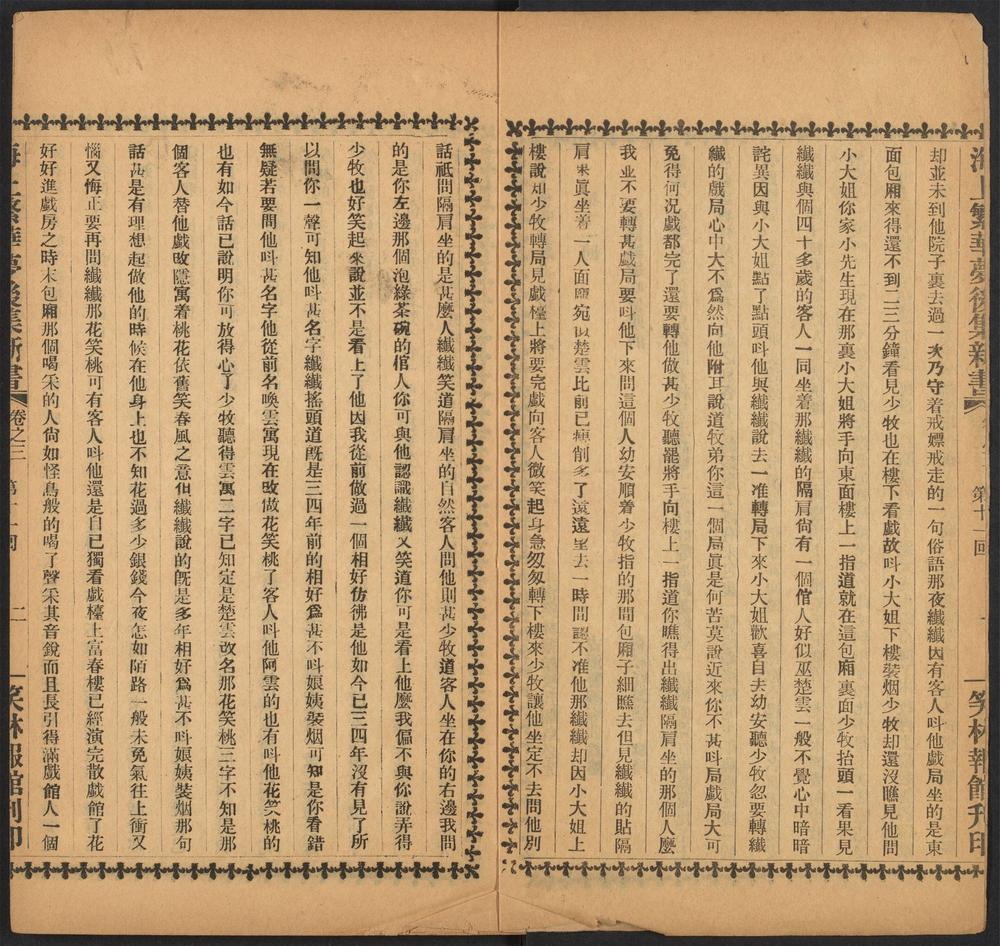 海上繁華夢後集新書 第十 回 一 笑林報館刊印
却並未到他院子裏去過一次乃守着戒嫖戒走的一句俗語那夜纖纖因有客人呌他戲局坐的是東
面包廂來得還不到二三分鐘看見少牧也在樓下看戲故呌小大姐下樓裝烟少牧却還沒瞧見他問
小大姐你家小先生現在那裏小大姐將手向東面樓上一指道就在這包廂裏面少牧抬頭一看果見
纖纖與個四十多歲的客人一同坐着那纖纖的隔肩尙有一個倌人好似巫楚雲一般不覺心中暗暗
詫異因與小大姐點了點頭呌他與纖纖說去一准轉局下來小大姐歡喜自去幼安聽少牧忽要轉纖
纖的戲局心中大不爲然向他附耳說道牧弟你這一個局眞是何苦莫說近來你不甚呌局戲局大可
免得何况戲都完了還要轉他做甚少牧聽罷將手向樓上一指道你瞧得出纖纖隔肩坐的那個人麼
我並不要轉甚戲局要呌他下來問這個人幼安順着少牧指的那間包廂子細瞧去但見纖纖的貼隔
肩果眞坐着一人面龎宛似楚雲比前已瘦削多了遠遠里去一時間認不准他那纖纖却因小大姐上
樓說知少牧轉局見戲檯上將要完戲向客人微笑起身急匆匆轉下樓來少牧讓他坐定不去問他別
話祇問隔肩坐的是甚麼人纖纖笑道隔肩坐的自然客人問他則甚少牧道客人坐在你的右邊我問
的是你左邊那個泡綠茶碗的倌人你可與他認識纖纖又笑道你可是看上他麼我偏不與你說弄得
少牧也好笑起來說並不是看上了他因我從前做過一個相好仿彿是他如今已三四年沒有見了所
以問你一聲可知他呌甚名字纖纖搖頭道旣是三四年前的相好爲甚不呌娘姨裝烟可知是你看錯
無疑若要問他呌甚名字他從前名喚雲寓現在改做花笑桃了客人呌他阿雲的也有呌他花笑桃的
也有如今話已說明你可放得心了少牧聽得雲寓二字已知定是楚雲改名那花笑桃三字不知是那
個客人替他戲改隱寓着桃花依舊笑春風之意但纖纖說的旣是多年相好爲甚不呌娘姨裝烟那句
話甚是有理想起做他的時候在他身上也不知花過多少銀錢今夜怎如陌路一般未免氣往上衝又
惱又悔正要再問纖纖那花笑桃可有客人呌他還是自已獨看戲檯上富春樓已經演完散戲館了花
好好進戲房之時末包廂那個喝采的人尙如怪鳥般的喝了聲采其音銳而且長引得滿戲館人一個
海上繁華夢後集新書 卷之三 第十一回 二 笑林報館刊印